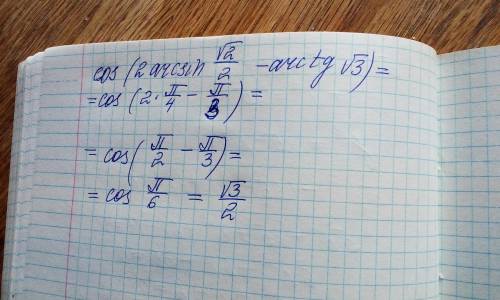 cos(2 arcsin √2/2 - arctg √3) =
= cos(2 · π/4 - π/3) =
= cos(π/2 - π/3) =
= cos π/6 = √3/2